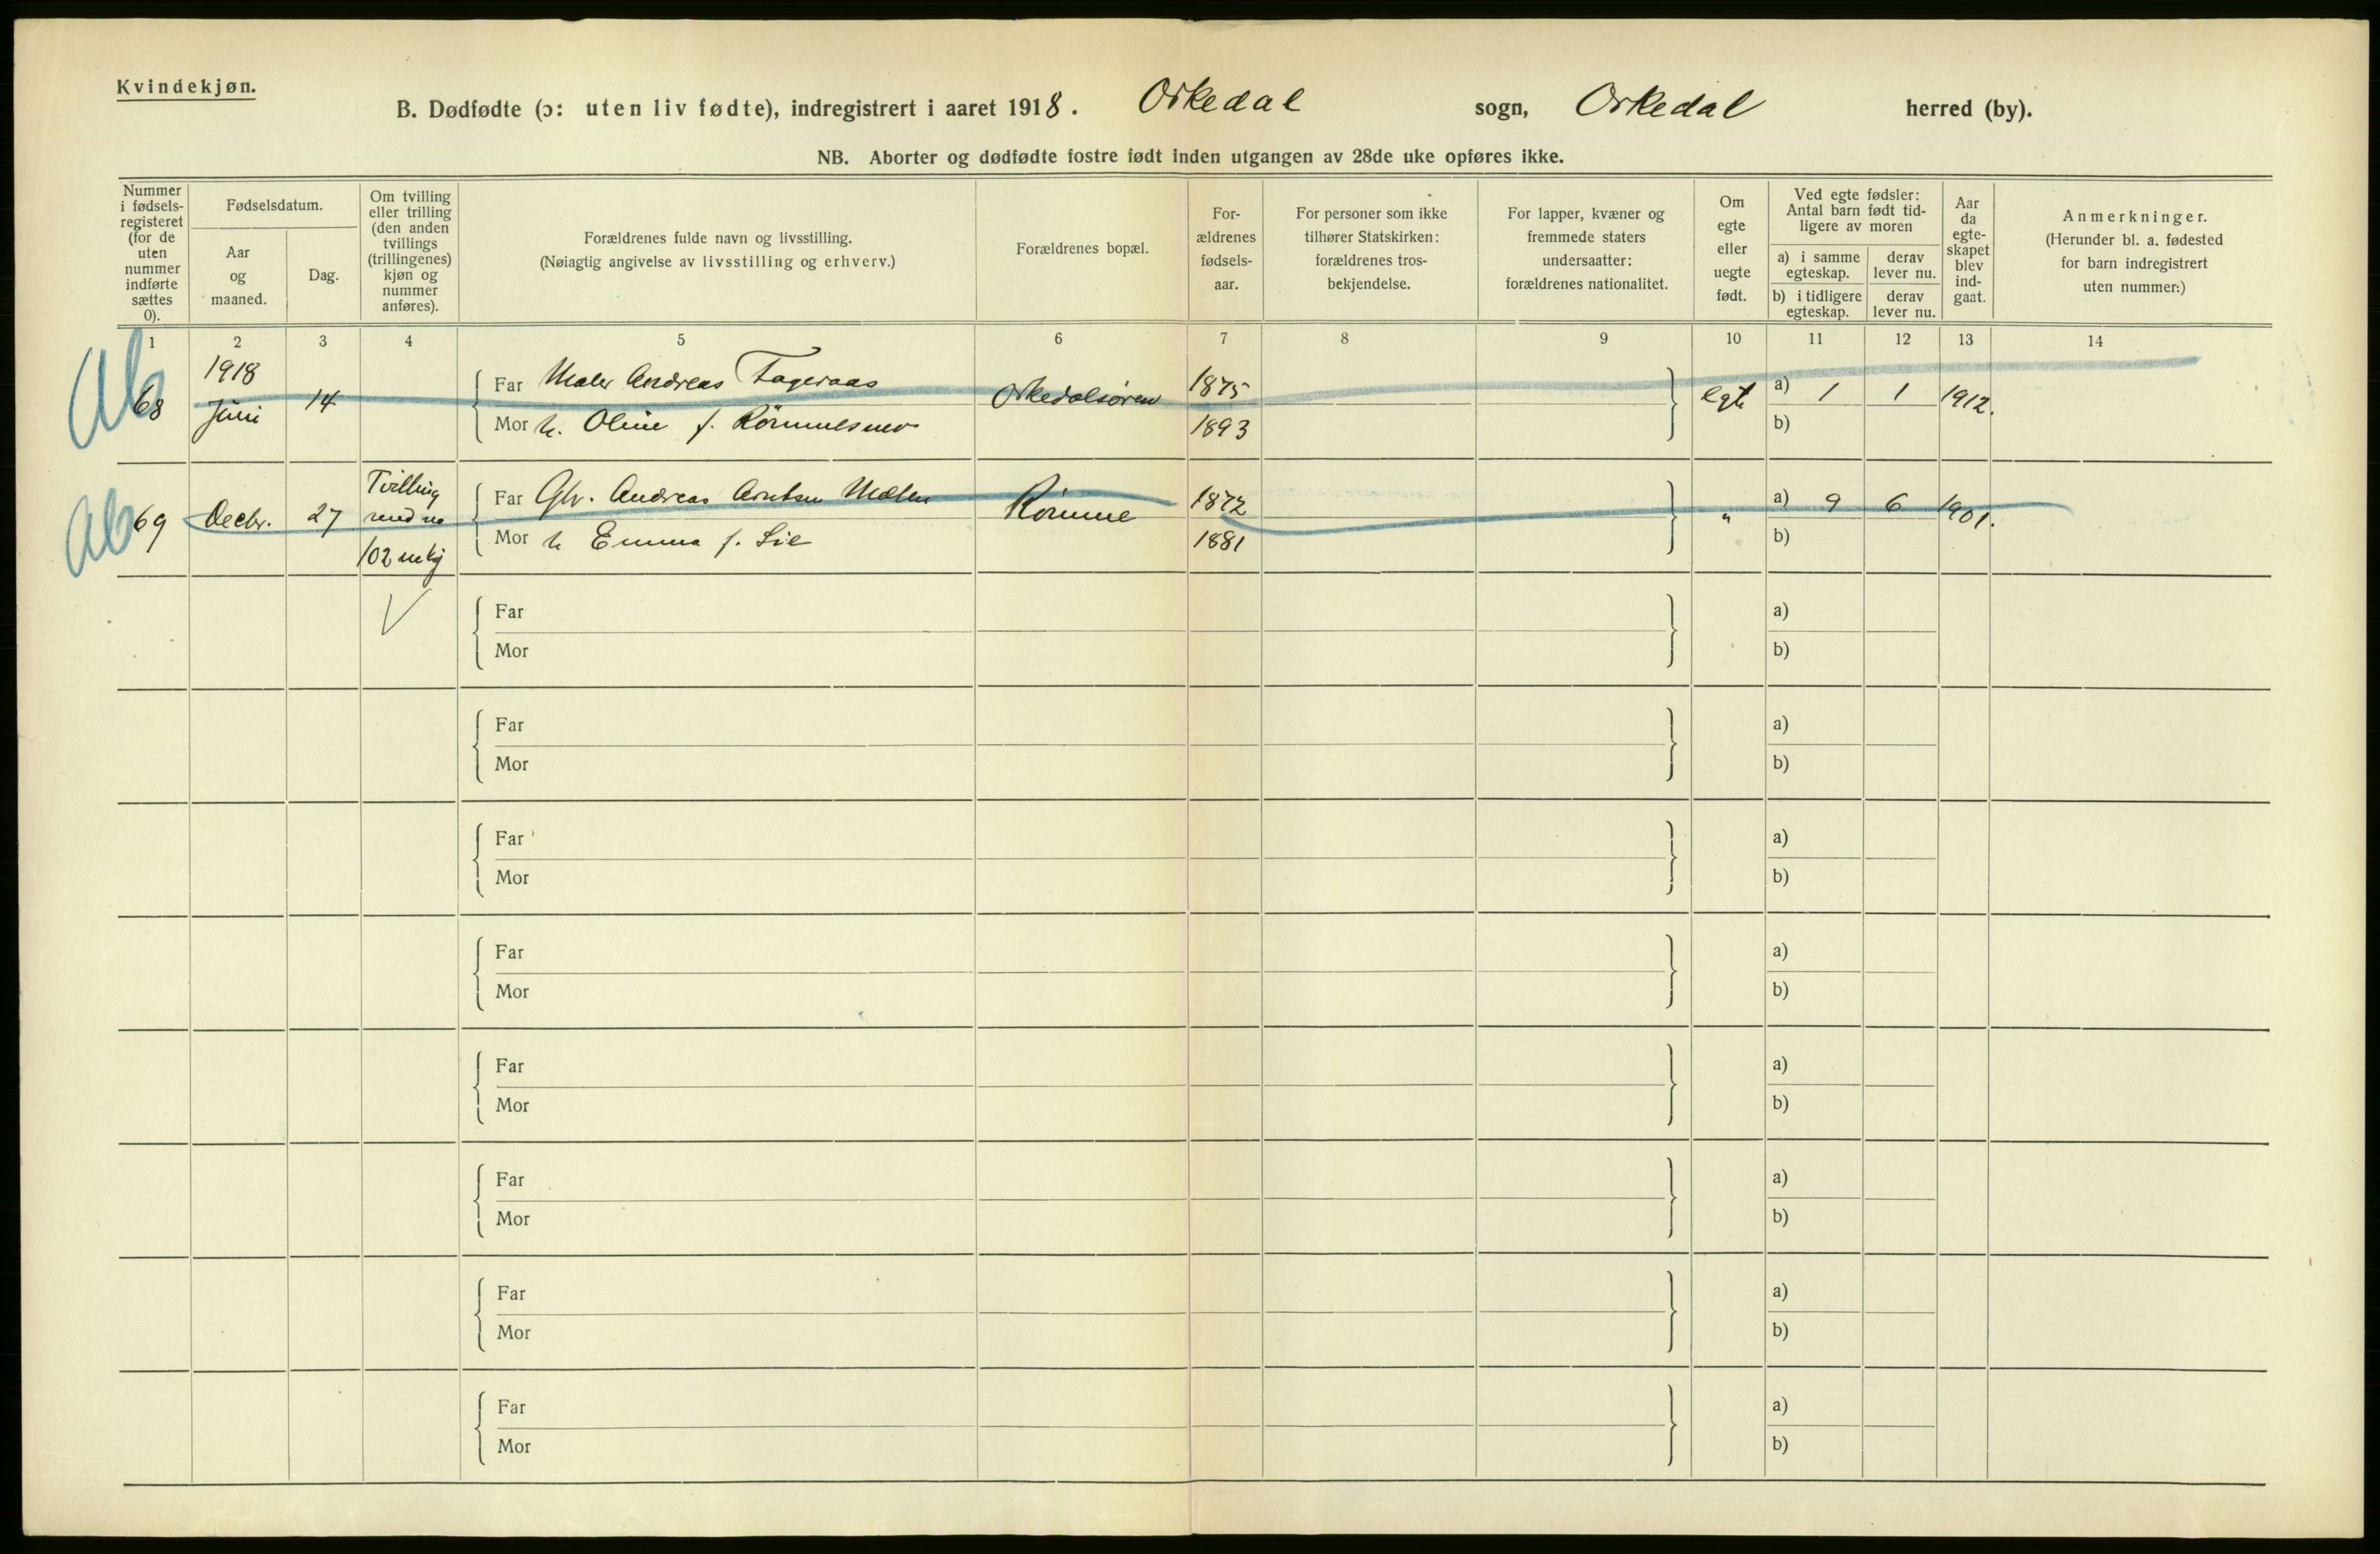 Kvindekjøn.
B. Dødfødte (ɔ: uten liv fødte), indregistrert i aaret 1918. Orkedal sogn, Orkedal herred (by).
NB. Aborter og dødfødte fostre født inden utgangen av 28de uke opføres ikke.
Nummer i fødsels-registeret (for de uten nummer indførte sættes 0).
Fødselsdatum.
Aar og maaned.
Dag.
Om tvilling eller trilling (den anden tvillings (trillingenes) kjøn og nummer anføres).
Forældrenes fulde navn og livsstilling.
(Nøiagtig angivelse av livsstilling og erhverv.)
Forældrenes bopæl.
For-ældrenes fødsels-aar.
For personer som ikke tilhører Statskirken: forældrenes tros-bekjendelse.
For lapper, kvæner og fremmede staters undersaatter: forældrenes nationalitet.
Om egte eller uegte født.
Ved egte fødsler: Antal barn født tid-ligere av moren
a) i samme egteskap.
derav lever nu.
b) i tidligere egteskap.
derav lever nu.
Aar da egte-skapet blev ind-gaat.
Anmerkninger.
(Herunder bl. a. fødested for barn indregistrert uten nummer:)
1 2 3 4 5 6 7 8 9 10 11 12 13 14
Ab 68 1918 Juni 14
Far Maler Andreas Fageraas Orkedalsøren 1875 egte a) 1 1 1912.
Mor h. Oline f. 1893 b)
Ab 69 Decbr. 27 Tvilling med no 102 mkj
Far Gbr. Andreas Arntsen Melen Rømme 1872 " a) 9 6 1901.
Mor h Emma f. Lie 1881 b)
Far a)
Mor b)
Far a)
Mor b)
Far a)
Mor b)
Far a)
Mor b)
Far a)
Mor b)
Far a)
Mor b)
Far a)
Mor b)
Far a)
Mor b)